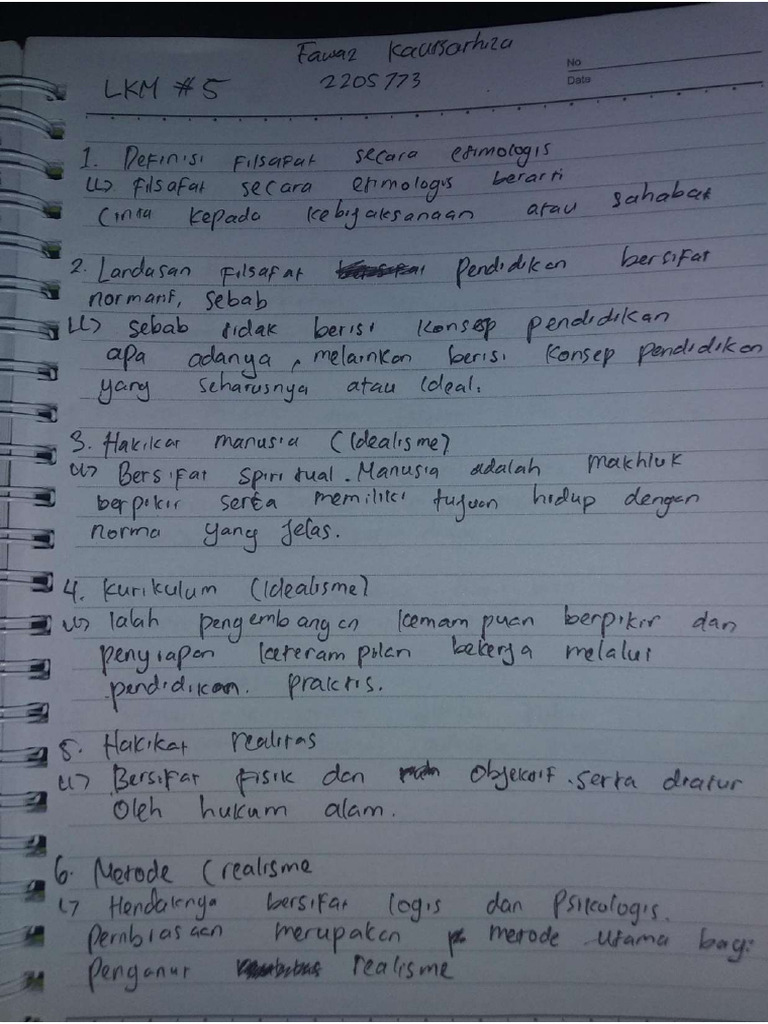 Fawaz Kausarhiza
No
LKM #5 2205773
Date
1. Definisi Filsafat secara etimologis
↳ Filsafat secara etimologis berarti
Cinta kepada kebijaksanaan atau sahabat
2. Landasan Filsafat pendidikan bersifat
normatif, sebab
↳ sebab tidak berisi konsep pendidikan
apa adanya, melainkan berisi konsep pendidikan
yang seharusnya atau ideal.
3. Hakikat manusia (Idealisme)
↳ Bersifat spiritual. Manusia adalah makhluk
berpikir serta memiliki tujuan hidup dengan
norma yang jelas.
4. Kurikulum (Idealisme)
↳ Ialah pengembangan kemampuan berpikir dan
penyiapan keterampilan bekerja melalui
pendidikan praktis.
5. Hakikat realitas
↳ Bersifat fisik dan objektif. serta diatur
oleh hukum alam.
6. Metode (realisme
↳ Hendaknya bersifat logis dan psikologis.
Pembiasaan merupakan metode utama bagi
penganut realisme